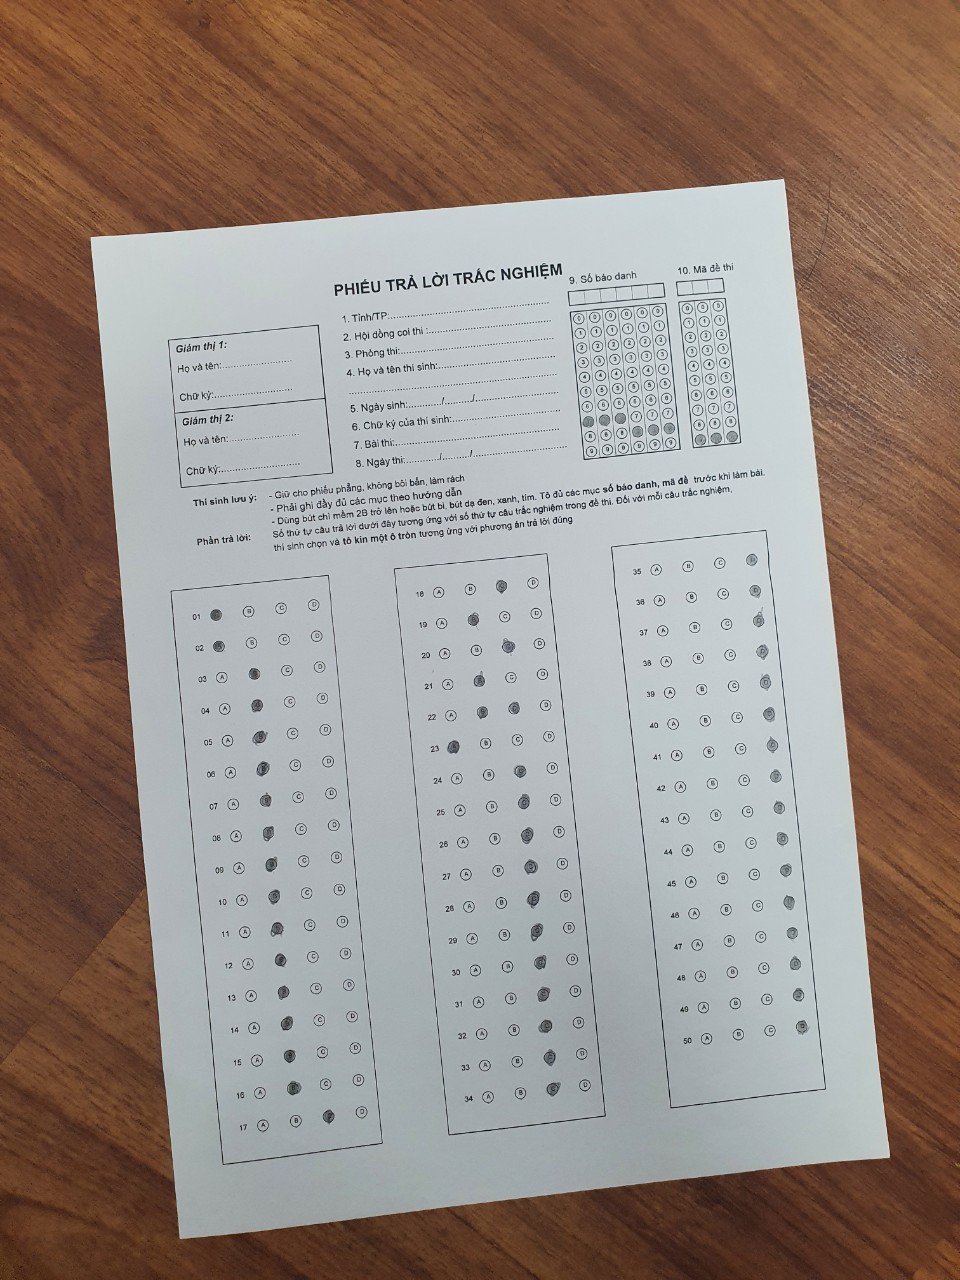 PHIẾU TRẢ LỜI TRẮC NGHIỆM
Giám thị 1:
Họ và tên:........................
Chữ ký:...........................
Giám thị 2:
Họ và tên:........................
Chữ ký:...........................
1. Tỉnh/TP:......................................................
2. Hội đồng coi thi :.........................................
3. Phòng thi:...................................................
4. Họ và tên thí sinh:.......................................
5. Ngày sinh:............/........../............................
6. Chữ ký của thí sinh:....................................
7. Bài thi:.......................................................
8. Ngày thi:............/........../..............................
9. Số báo danh
0 0 0 0 0 0
1 1 1 1 1 1
2 2 2 2 2 2
3 3 3 3 3 3
4 4 4 4 4 4
5 5 5 5 5 5
6 6 6 6 6 6
7 7 7
8 8 8
9 9 9 9 9 9
10. Mã đề thi
0 0 0
1 1 1
2 2 2
3 3 3
4 4 4
5 5 5
6 6 6
7 7 7
8 8 8
Thí sinh lưu ý: - Giữ cho phiếu phẳng, không bôi bẩn, làm rách
- Phải ghi đầy đủ các mục theo hướng dẫn
- Dùng bút chì mềm 2B trở lên hoặc bút bi, bút dạ đen, xanh, tím. Tô đủ các mục số báo danh, mã đề trước khi làm bài.
Phần trả lời: Số thứ tự câu trả lời dưới đây tương ứng với số thứ tự câu trắc nghiệm trong đề thi. Đối với mỗi câu trắc nghiệm,
thí sinh chọn và tô kín một ô tròn tương ứng với phương án trả lời đúng
01 B C D
02 B C D
03 A C D
04 A C D
05 A B C D
06 A B C D
07 A B C D
08 A B C D
09 A B C D
10 A B C D
11 A B C D
12 A C D
13 A B C D
14 A B C D
15 A B C D
16 A B C D
17 A B D
18 A B C D
19 A B C D
20 A B D
21 A B C D
22 A B C D
23 A B C D
24 A B C D
25 A B C D
26 A B C D
27 A B C D
28 A B D
29 A B C D
30 A B C D
31 A B C D
32 A B C D
33 A B C D
34 A B C D
35 A B C D
36 A B C D
37 A B C D
38 A B C D
39 A B C D
40 A B C D
41 A B C D
42 A B C D
43 A B C D
44 A B C D
45 A B C D
46 A B C D
47 A B C D
48 A B C D
49 A B C D
50 A B C D